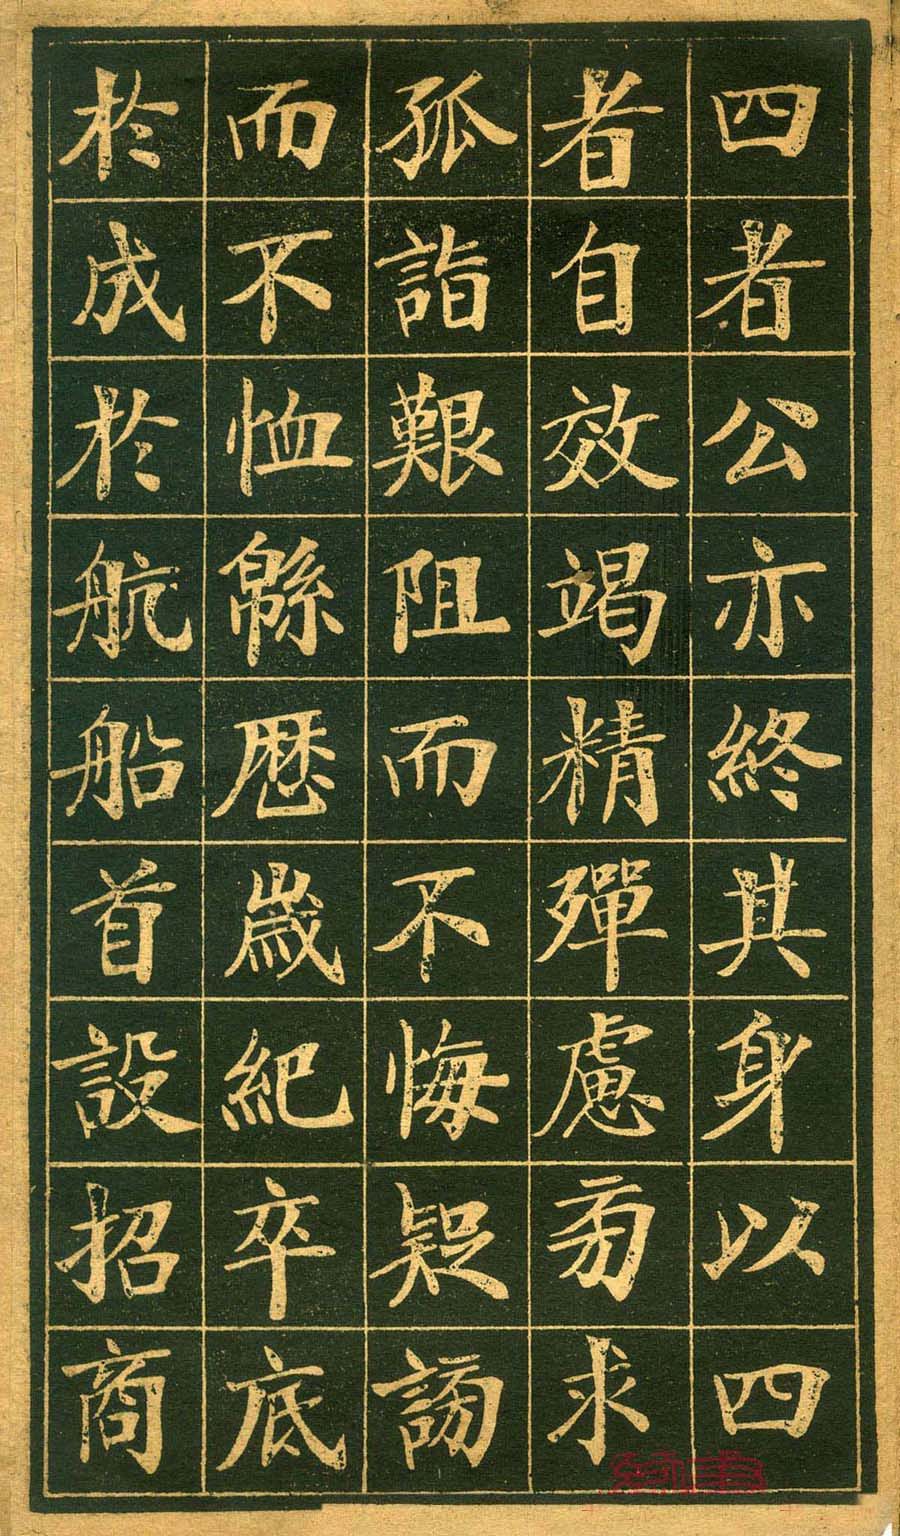 四者公亦終其身以四
者自效竭精殫慮旁求
孤詣艱阻而不悔疑謗
而不恤緜歷歲紀卒底
於成於航船首設招商